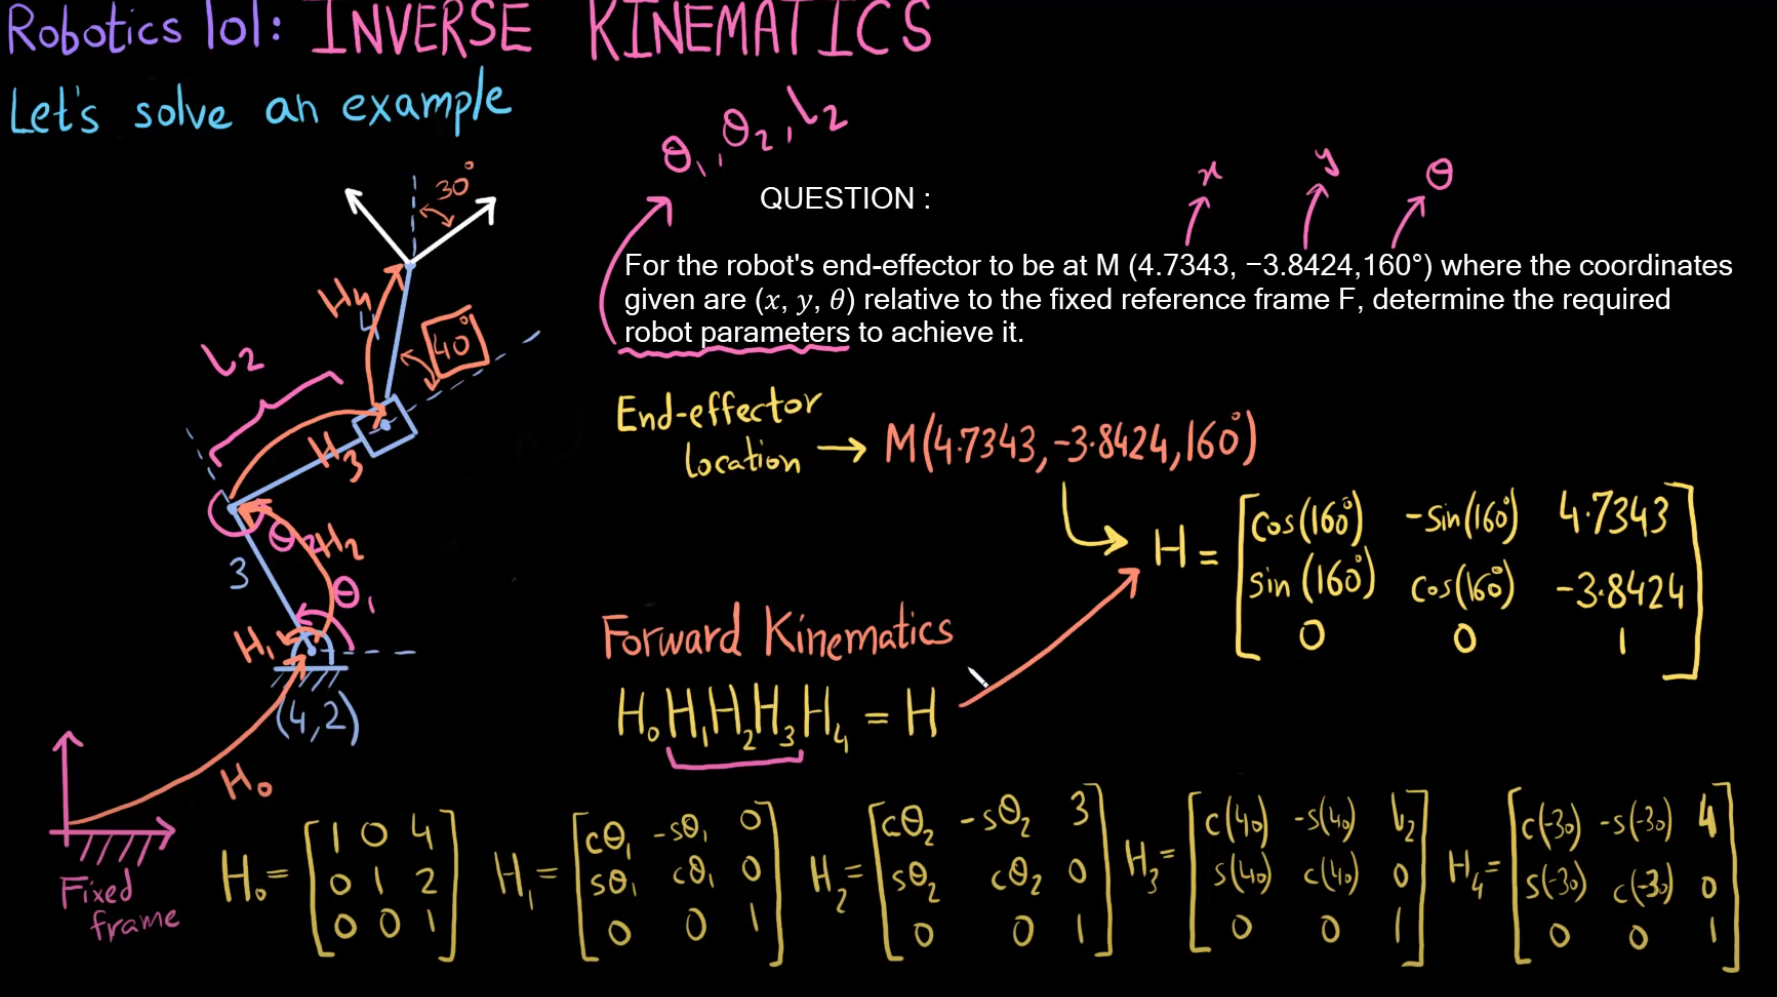 Robotics 101: INVERSE KINEMATICS
Let's solve an example
θ₁, θ₂, l₂
x y θ
QUESTION :
For the robot's end-effector to be at M (4.7343, −3.8424,160°) where the coordinates
given are (x, y, θ) relative to the fixed reference frame F, determine the required
robot parameters to achieve it.
30°
H₄
4
40°
l₂
H₃
θ₂
H₂
3
θ₁
H₁
(4,2)
H₀
Fixed
frame
End-effector
location → M(4.7343,-3.8424,160°)
H = [cos(160°) -sin(160°) 4.7343
sin(160°) cos(160°) -3.8424
0 0 1]
Forward Kinematics
H₀H₁H₂H₃H₄ = H
H₀ = [1 0 4
0 1 2
0 0 1]
H₁ = [cθ₁ -sθ₁ 0
sθ₁ cθ₁ 0
0 0 1]
H₂ = [cθ₂ -sθ₂ 3
sθ₂ cθ₂ 0
0 0 1]
H₃ = [c(40) -s(40) l₂
s(40) c(40) 0
0 0 1]
H₄ = [c(-30) -s(-30) 4
s(-30) c(-30) 0
0 0 1]